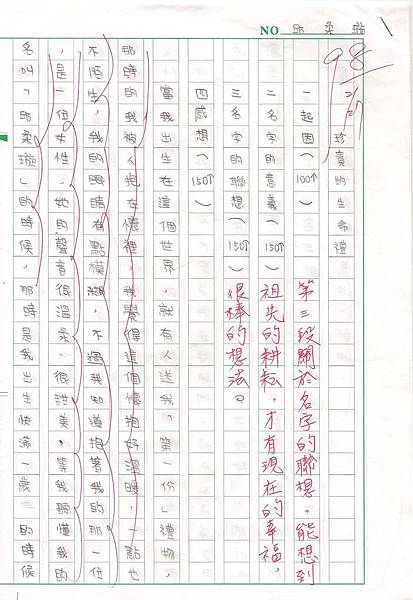 NO 邱柔璇
98
2/27
珍貴的生命禮
一起因(100↑)
二名字的意義(150↑)
三名字的聯想(150↑)
四感想(150↑)
第三段關於名字的聯想,能想到
祖先的耕耘,才有現在的幸福,
很棒的想法。
當我出生在這個世界,就有人送我「第一份」禮物,
那時的我被人抱在懷裡,我覺得這個懷抱好溫暖,一點也
不陌生,我的眼睛有點模糊,不過我知道抱著我的那一位
,是一位女性,她的聲音很溫柔、很甜美,等我聽懂我的
名叫「邱柔璇」的時候,那時是我出生快滿一歲的時候